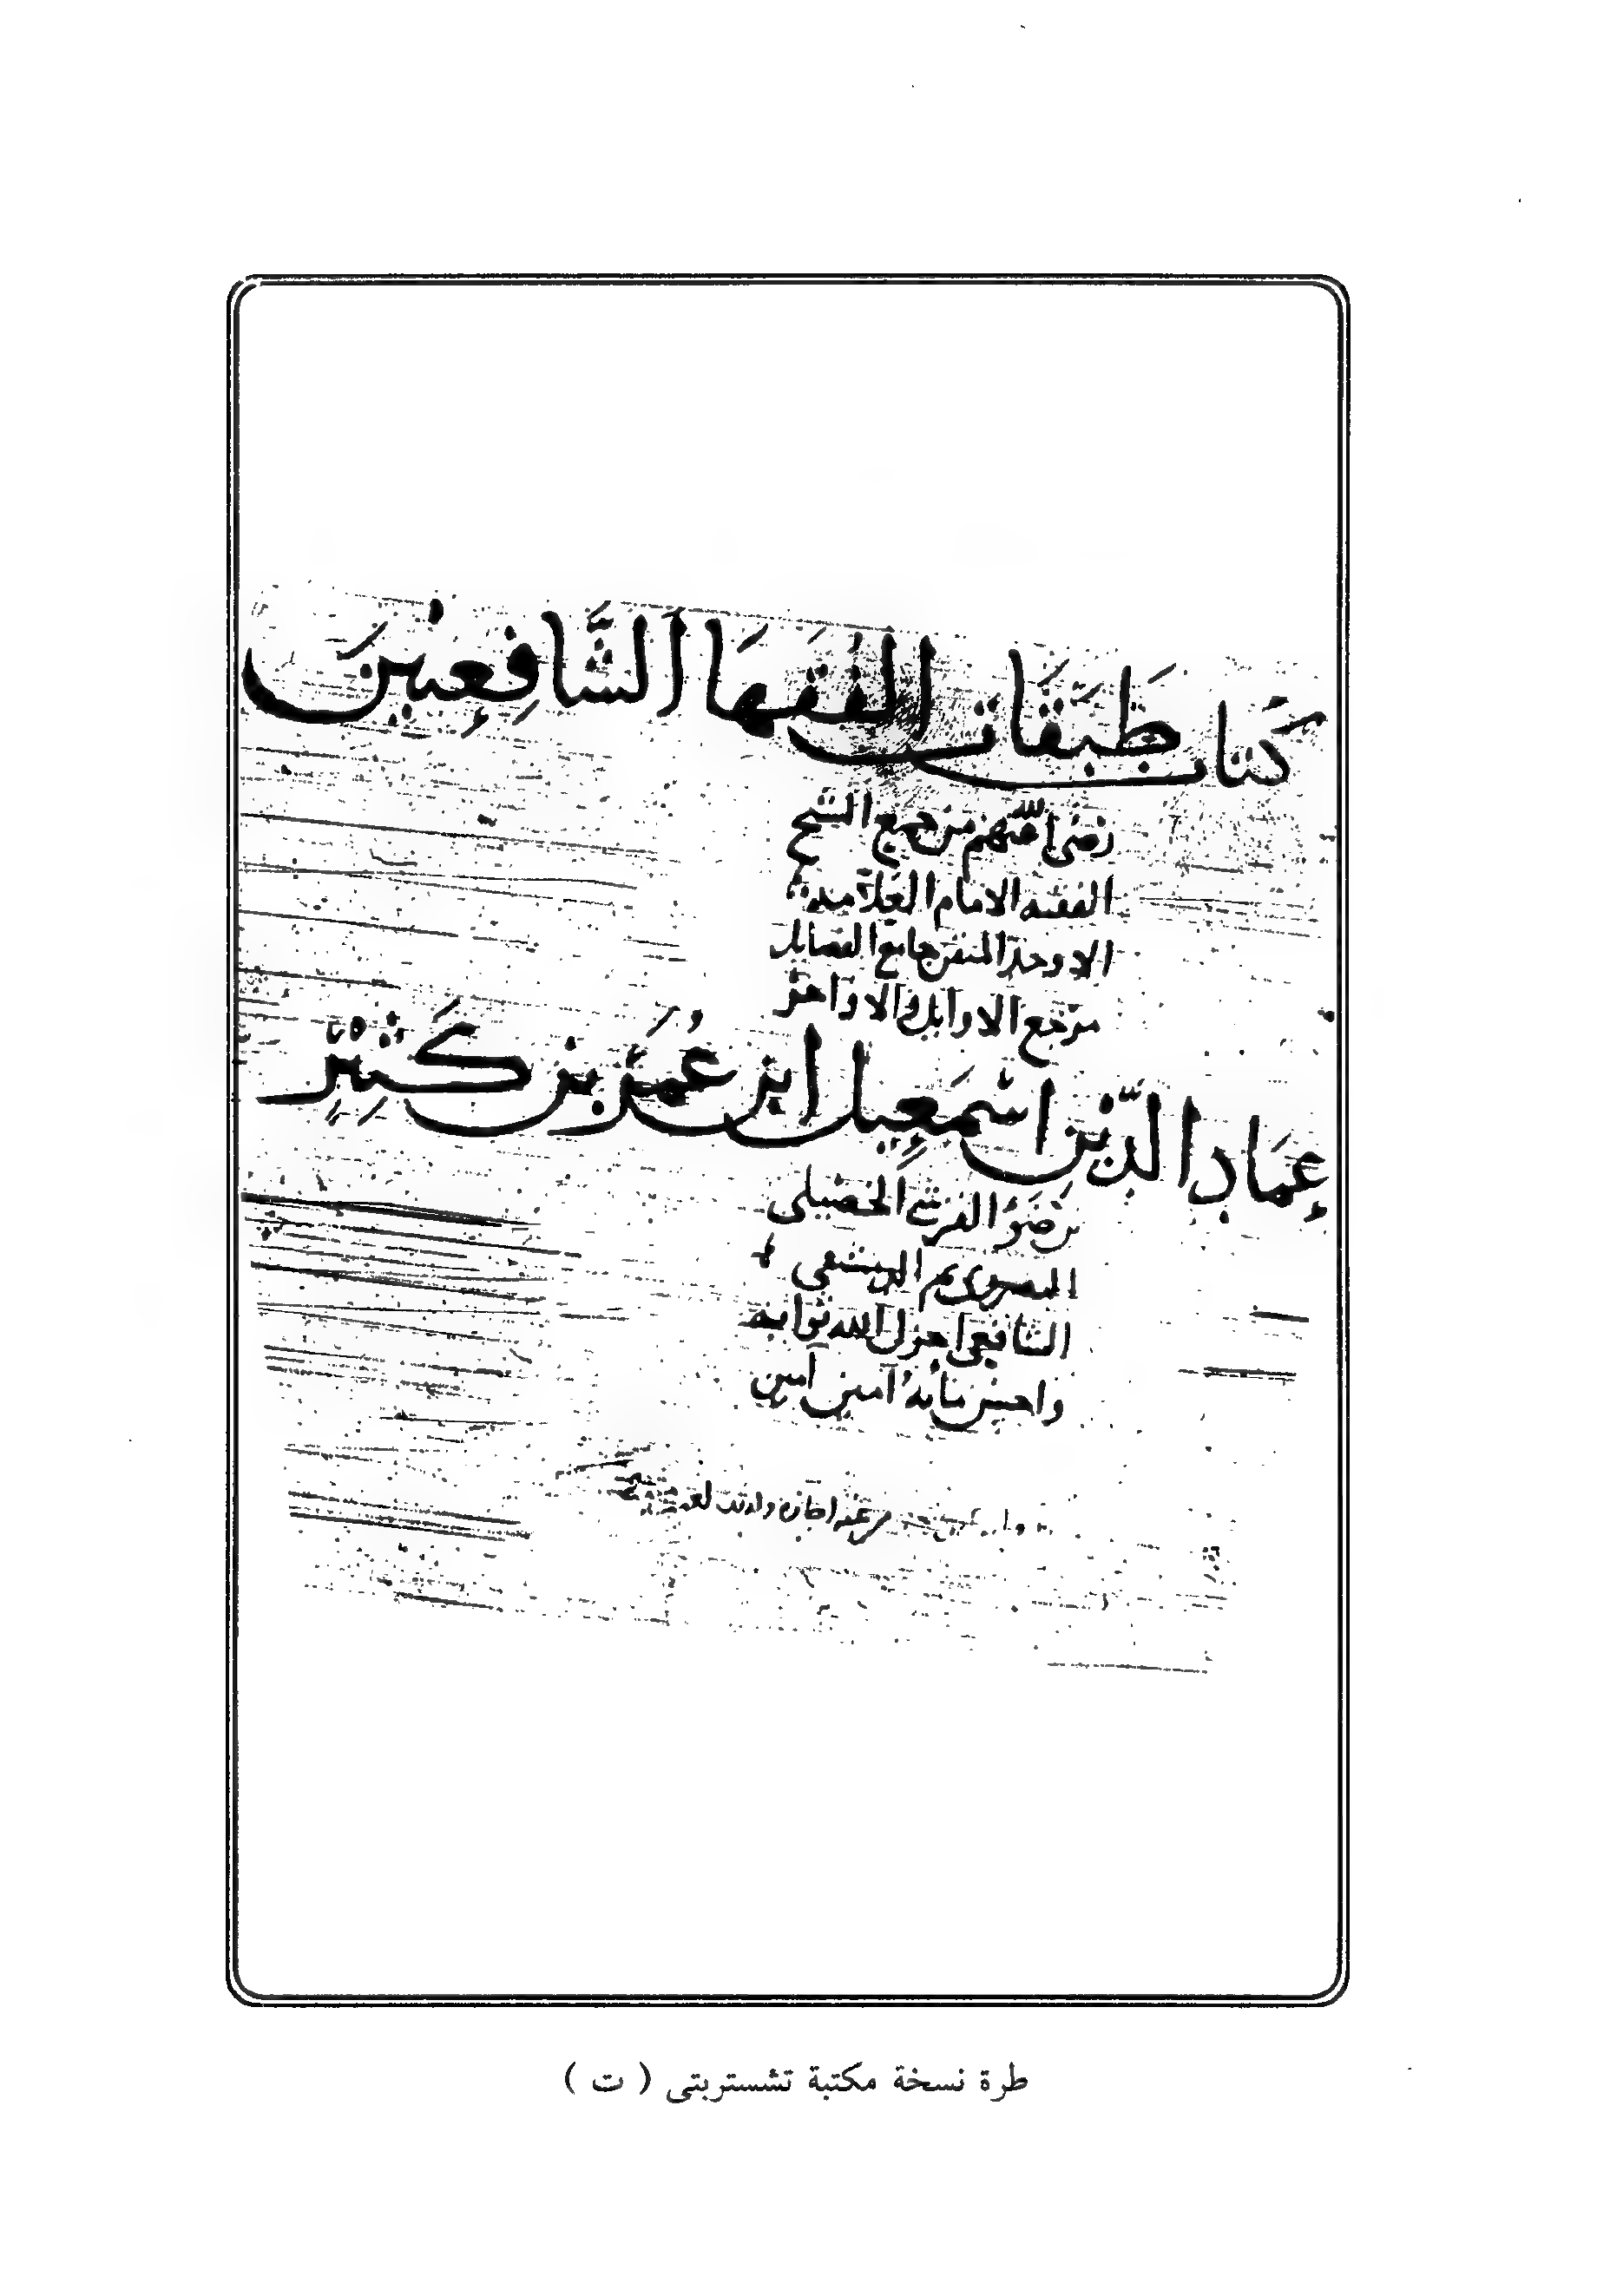 كتاب طَبَقَات الفُقَهَا الشَّافِعِيينَ
رضى الله عنهم من جمع الشيخ
الفقيه الامام العلامة
الاوحد المتقن جامع الفضايل
مرجع الاوايل والاواخر
عِمَاد الدِّين اسْمَعِيل ابن عُمَر بن كَثِيْر
بن ضَوْ القرشي الحصيلى
البصروى ثم الدمشقي
الشافعي اجزل الله ثوابه
واحسن مآبه آمين آمين
طرة نسخة مكتبة تشستربتى ( ت )